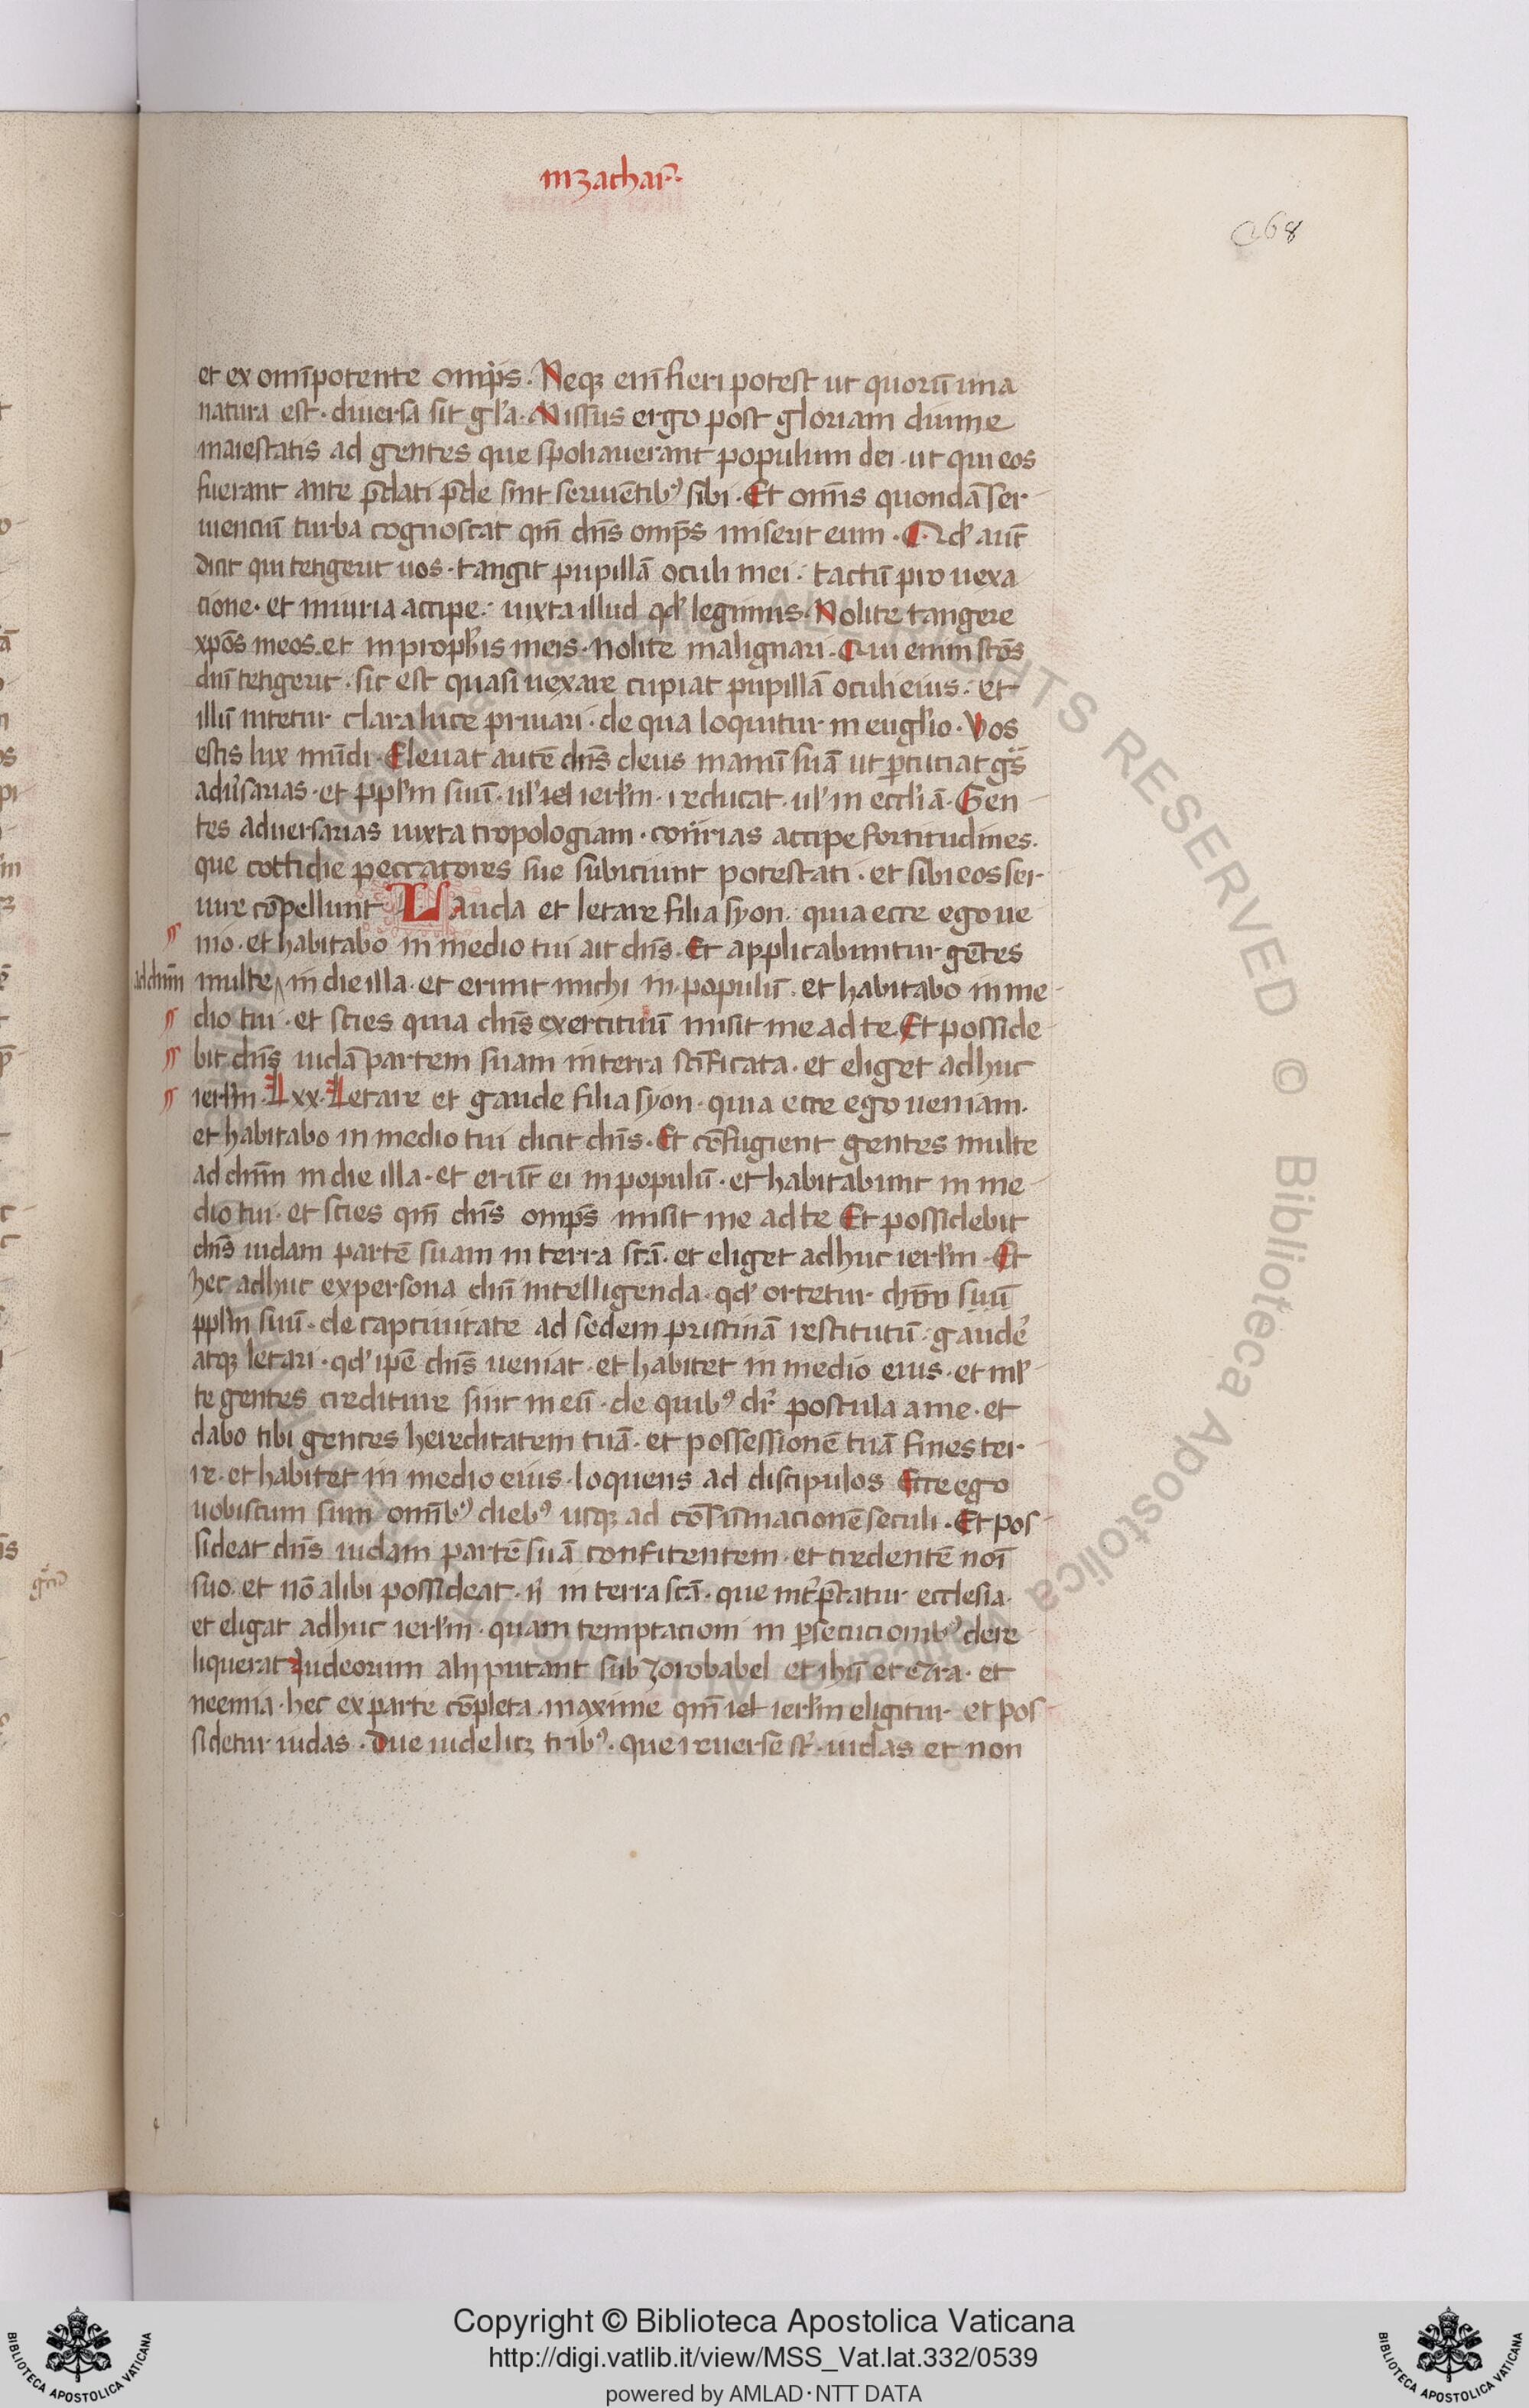 in zachar̄
268
et ex om̄ipotente omp̄s. Neqꝫ eni᷑ fieri potest ut quoru᷑ una
natura est. diuersa sit gl̄a. Missus ergo post gloriam diuine
maiestatis ad gentes que spoliauerant populum dei. ut qui eos
fuerant ante p̄dati p̄de sint seruētibꝰ sibi. Et om̄s quondā ser
uenciū turba cognoscat qm̄ dn̄s omp̄s miserit eum. Qd' aut̄
dicit qui tetigerit uos. tangit pupillā oculi mei. tactū pro uexa
cione. et iniuria accipe. iuxta illud qd' legimus. Nolite tangere
xp̄os meos. et in proph̄is meis. nolite malignari. Qui enim sc̄os
dn̄i tetigerit. sic est quasi uexare cupiat pupillā oculi eius. et
illū nitetur clara luce priuari. de qua loquitur in eugl̄io. Vos
estis lux mūdi. Eleuat autē dn̄s deus manū suā ut ꝑcutiat gs̄
adu'sarias. et ppl̄m suū. ul' iel ierl̄m. reducat. ul' in eccl̄iā. Gen
tes aduersarias iuxta tropologiam. cont̄rias accipe fortitudines.
que cottidie peccatores sue subiciunt potestati. et sibi eos ser
uire cōpellunt Lauda et letare filia syon. quia ecce ego ue
nio. et habitabo in medio tui ait dn̄s. Et applicabuntur gētes
ad dn̄m multe in die illa. et erunt michi in populū. et habitabo in me
dio tui. et scies quia dn̄s exercituū misit me ad te. Et posside
bit dn̄s iudā partem suam in terra sc̄ificata. et eliget adhuc
ierl̄m. Lxx. Letare et gaude filia syon. quia ecce ego ueniam.
et habitabo in medio tui dicit dn̄s. Et cōfugient gentes multe
ad dn̄m in die illa. et erūt ei in populū. et habitabunt in me
dio tui. et scies qm̄ dn̄s omp̄s misit me ad te Et possidebit
dn̄s iudam partē suam in terra sc̄a. et eliget adhuc ierl̄m. Et
hec adhuc ex persona dn̄i intelligenda. qd' ortetur suū
ppl̄m suū. de captiuitate ad sedem pristinā restitutū. gaudē
atqꝫ letari. qd' ip̄e dn̄s ueniat. et habitet in medio eius. et ml'
te gentes crediture sint in eū. de quibꝰ dr̄ postula a me. et
dabo tibi gentes hereditatem tuā. et possessionē tuā fines ter
re. et habitet in medio eius. loquens ad discipulos Ecce ego
uobiscum sum om̄ibꝰ diebꝰ usqꝫ ad cōsummacionē seculi. Et pos
sideat dn̄s iudam partē suā confitentem. et credentē noī
suo. et nō alibi possideat. n' in terra sc̄a. que int'p̄tatur ecclesia.
et eligat adhuc ierl̄m. quam temptacioni in ꝑsecucionibꝰ dere
liquerat Iudeorum alij putant sub zorobabel et ih̄u et ezra. et
neemia. hec ex parte cōpleta. maxime qm̄ iel ierl̄m eligitur et pos
sidetur iudas. Due uidelicꝫ tribꝰ. que reuerse st̄. iudas et non
Copyright © Biblioteca Apostolica Vaticana
http://digi.vatlib.it/view/MSS_Vat.lat.332/0539
powered by AMLAD·NTT DATA